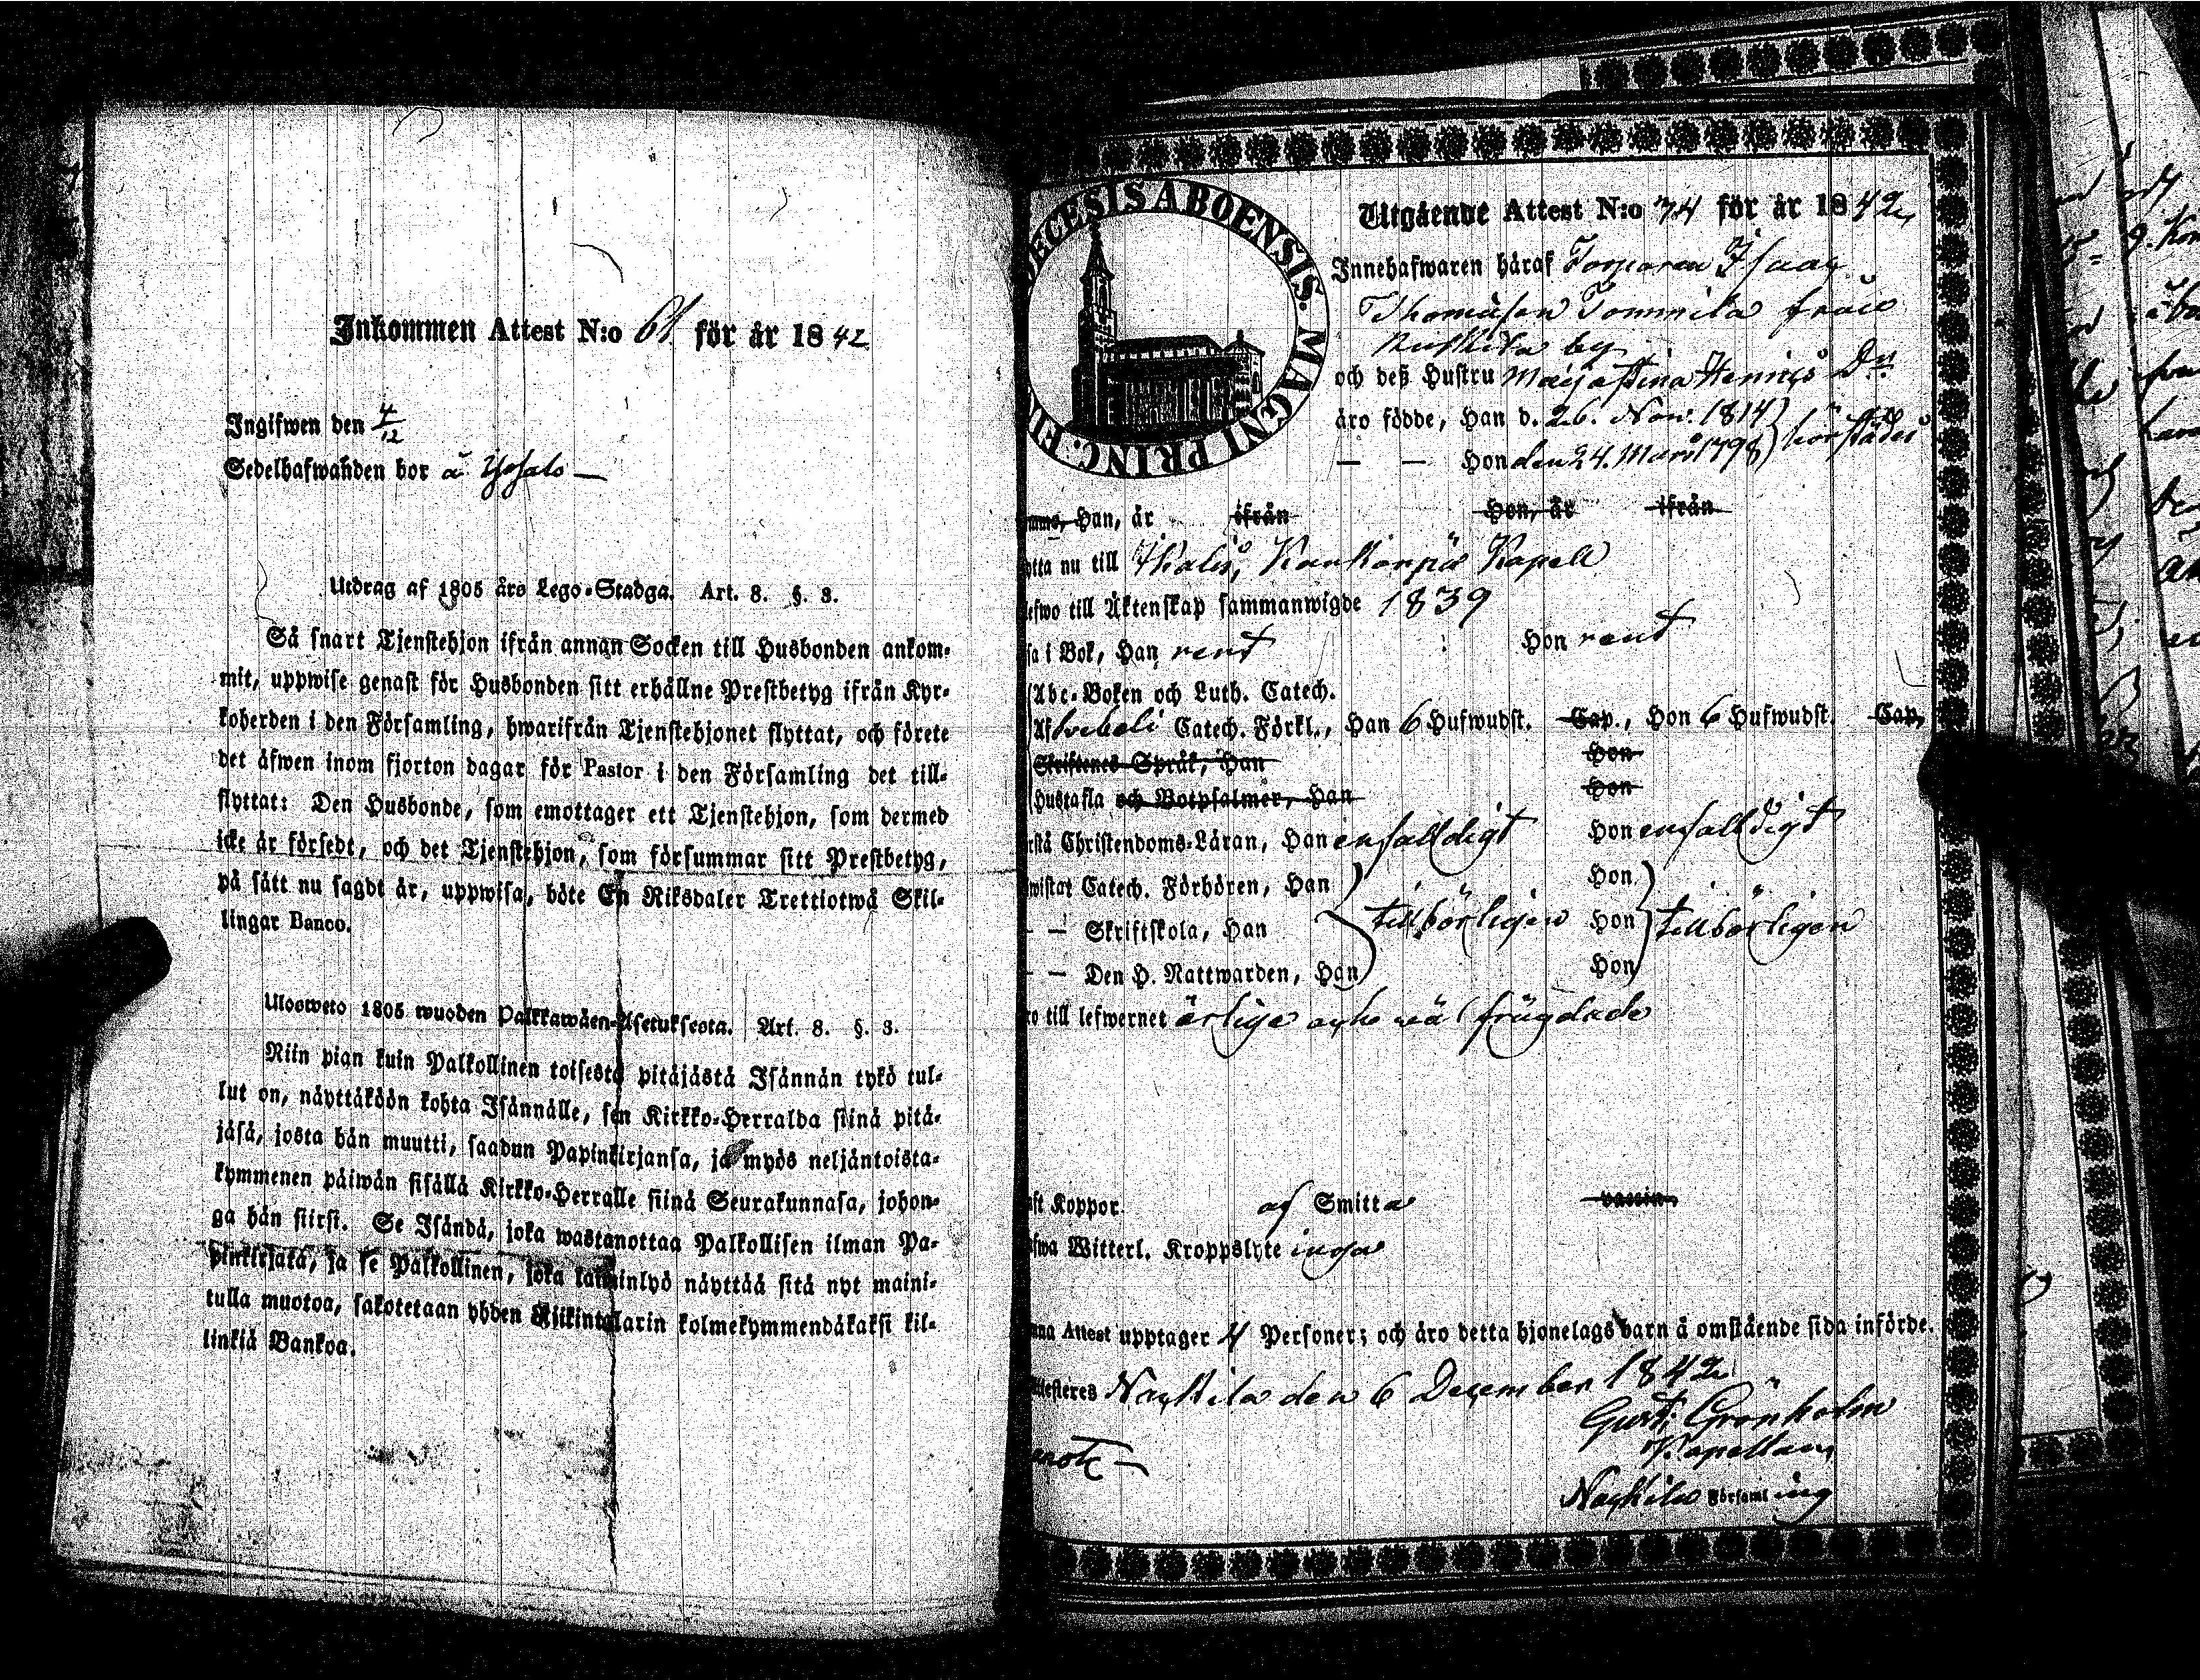 Inkommen Attest N:o 61 för år 1842
Ingifwen den 4/12
Sedelhafwanden bor å
Utdrag af 1805 års Lego-Stadga. Art. 8. §. 3.
Så snart Tjenstehjon ifrån annan Socken till Husbonden ankom-
mit, uppwise genast för Husbonden sitt erhållne Prestbetyg ifrån Kyr-
koherden i den Församling, hwarifrån Tjenstehjonet flyttat, och förete
det äfwen inom fjorton dagar för Pastor i den Församling det till-
flyttat: Den Husbonde, som emottager ett Tjenstehjon, som dermed
icke är försedt, och det Tjenstehjon, som försummar sitt Prestbetyg,
på sätt nu sagdt är, uppwisa, böte En Riksdaler Trettiotwå Skil-
lingar Banco.
Ulosweto 1805 wuoden Palkkawäen-Asetuksesta. Art. 8. §. 3.
Niin pian kuin Palkollinen toisesta pitäjästä Isännän tykö tul-
lut on, näyttäköön kohta Isännälle, sen Kirkko-Herralda siinä pitä-
jäsä, josta hän muutti, saadun Papinkirjansa, ja myös neljäntoista-
kymmenen päiwän sisällä Kirkko-Herralle siinä Seurakunnasa, johon-
ga hän siirsi. Se Isändä, joka wastanottaa Palkollisen ilman Pa-
pinkirjata, ja se Palkollinen, joka laiminlyö näyttää sitä nyt maini-
tulla muotoa, sakotetaan yhden Riikintalarin kolmekymmendäkaksi kil-
linkiä Bankoa.
DIŒCESIS ABOENSIS. MAGNI PRINC. FI
Utgående Attest N:o 74 för år 1842
Innehafwaren häraf Torparen Isaac
Thomasson Tommila från
by
och deß Hustru Maja Stina Henrics Dr
äro födde, Han d. 26. Nov. 1814 härstädes
— — Hon den 24. Mars 1798
Han, är ifrån Hon, är ifrån
tta nu till Ikalis, Kankanpä Kapell
efwo till Äktenskap sammanwigde 1839
sa i Bok, Han rent Hon rent
Abc-Boken och Luth. Catech.
Af Svebeli Catech. Förkl., Han 6 Hufwudst. Cap., Hon 6 Hufwudst. Cap.
Skriftenes Språk, Han Hon
Hustafla och Botpsalmer, Han Hon
rstå Christendoms-Läran, Han enfalldigt Hon enfalldigt
wistat Catech. Förhören, Han Hon
— — Skriftskola, Han tillbörligen Hon tillbörligen
— — Den H. Nattwarden, Han Hon
ro till lefwernet ärlige och wäl frägdade
aft Koppor. af Smitta vaccin.
afwa Witterl. Kroppslyte inga
nna Attest upptager 4 Personer; och äro detta hjonelags barn å omstående sida införde.
ttesteres Nackila den 6 December 1842
Gust: Grönholm
Kapellan
Nackila Församling